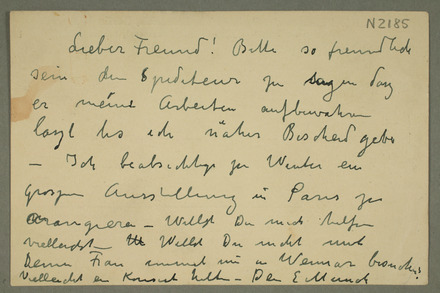 N2185
Lieber Freund! Bitte so freundlich
sein dem Spediteur zu sagen dass
er meine Arbeiten aufbewahren
lasst bis ich näher Bescheid gebe
– Ich beabsichtige zu Winter ein
grossen Ausstellung in Paris zu
arangieren – Willst Du mich helfen
vielleicht – Willst Du nicht und
Deine Frau einmal mir in Weimar besuchen?
Vielleicht ein Konzert – Dein E Munch